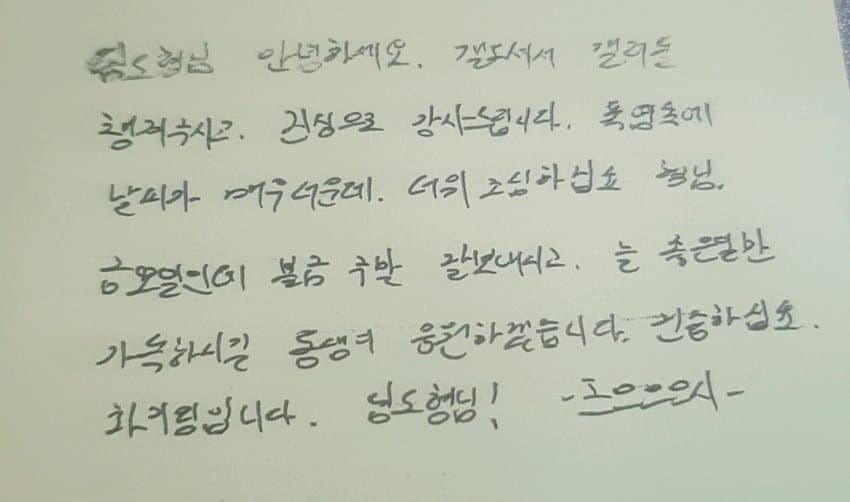 딤도형님 안녕하세요. 갤도셔서 갤러들
챙겨주시고. 진심으로 감사드립니다. 폭염속에
날씨가 매우더운데. 더위조심하십쇼 형님.
금요일인데 불금 주말 잘보내시고. 늘 좋은일만
가득하시길 동생이 응원하겠습니다. 건승하십쇼.
화이팅입니다. 딤도형님!